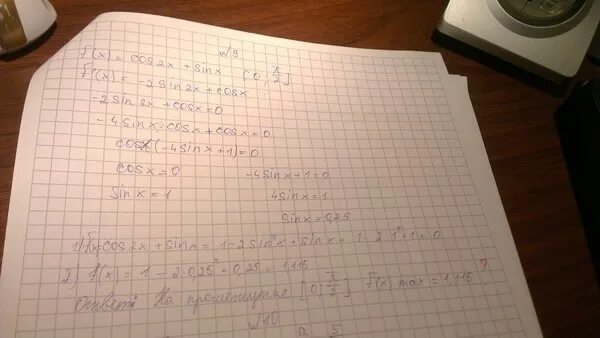 №9
f(x) = cos2x + sinx [0; π/2]
f'(x) = -2sin2x + cosx
-2sin2x + cosx=0
-4sinx·cosx+cosx=0
cosx(-4sinx+1)=0
cosx=0 -4sinx+1=0
sinx=1 4sinx=1
sinx=0,25
1) f(x)=cos2x+sinx=1-2sin²x+sinx=1-2·1²+1=0
2) f(x)=1-2·0,25²+0,25=1,115
Ответ: На промежутке [0; π/2] f(x) max=1,115 ?
№10
5